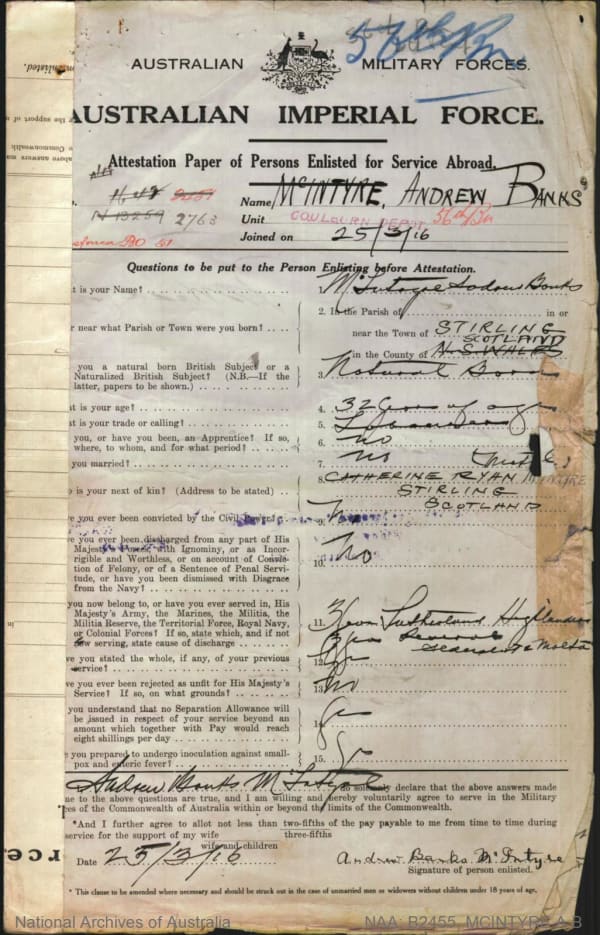 56th Bn
AUSTRALIAN MILITARY FORCES.
AUSTRALIAN IMPERIAL FORCE.
Attestation Paper of Persons Enlisted for Service Abroad.
Name McINTYRE, ANDREW BANKS
N 13259 2763
Unit GOULBURN DEPOT 56th Bn
Joined on 25/3/16
Questions to be put to the Person Enlisting before Attestation.
t is your Name? 1. McIntyre Andrew Banks
2. In the Parish of in or
r near what Parish or Town were you born? near the Town of STIRLING
SCOTLAND
in the County of N.S. WALES
you a natural born British Subject or a
Naturalized British Subject? (N.B.—If the
latter, papers to be shown.) 3. Natural Born
t is your age? 4. 32 years of age
t is your trade or calling? 5.
you, or have you been, an Apprentice? If so,
where, to whom, and for what period? 6. No
you married? 7. No
8. CATHERINE RYAN McINTYRE
o is your next of kin? (Address to be stated) STIRLING
SCOTLAND
e you ever been convicted by the Civil Power? 9.
e you ever been discharged from any part of His
Majesty's Forces, with Ignominy, or as Incor-
rigible and Worthless, or on account of Convic-
tion of Felony, or of a Sentence of Penal Servi-
tude, or have you been dismissed with Disgrace
from the Navy? 10. No
you now belong to, or have you ever served in, His
Majesty's Army, the Marines, the Militia, the
Militia Reserve, the Territorial Force, Royal Navy,
or Colonial Forces? If so, state which, and if not
now serving, state cause of discharge 11. Sutherland Highlanders
Reserve
e you stated the whole, if any, of your previous
service? 12. Yes
e you ever been rejected as unfit for His Majesty's
Service? If so, on what grounds? 13. No
you understand that no Separation Allowance will
be issued in respect of your service beyond an
amount which together with Pay would reach
eight shillings per day 14. Yes
e you prepared to undergo inoculation against small-
pox and enteric fever? 15. Yes
Andrew Banks McIntyre do solemnly declare that the above answers made
me to the above questions are true, and I am willing and hereby voluntarily agree to serve in the Military
ces of the Commonwealth of Australia within or beyond the limits of the Commonwealth.
*And I further agree to allot not less than two-fifths of the pay payable to me from time to time during
three-fifths
service for the support of my wife
wife and children
Date 25/3/16 Andrew Banks McIntyre
Signature of person enlisted.
* This clause to be amended where necessary and should be struck out in the case of unmarried men or widowers without children under 18 years of age.
National Archives of Australia NAA: B2455, MCINTYRE A B